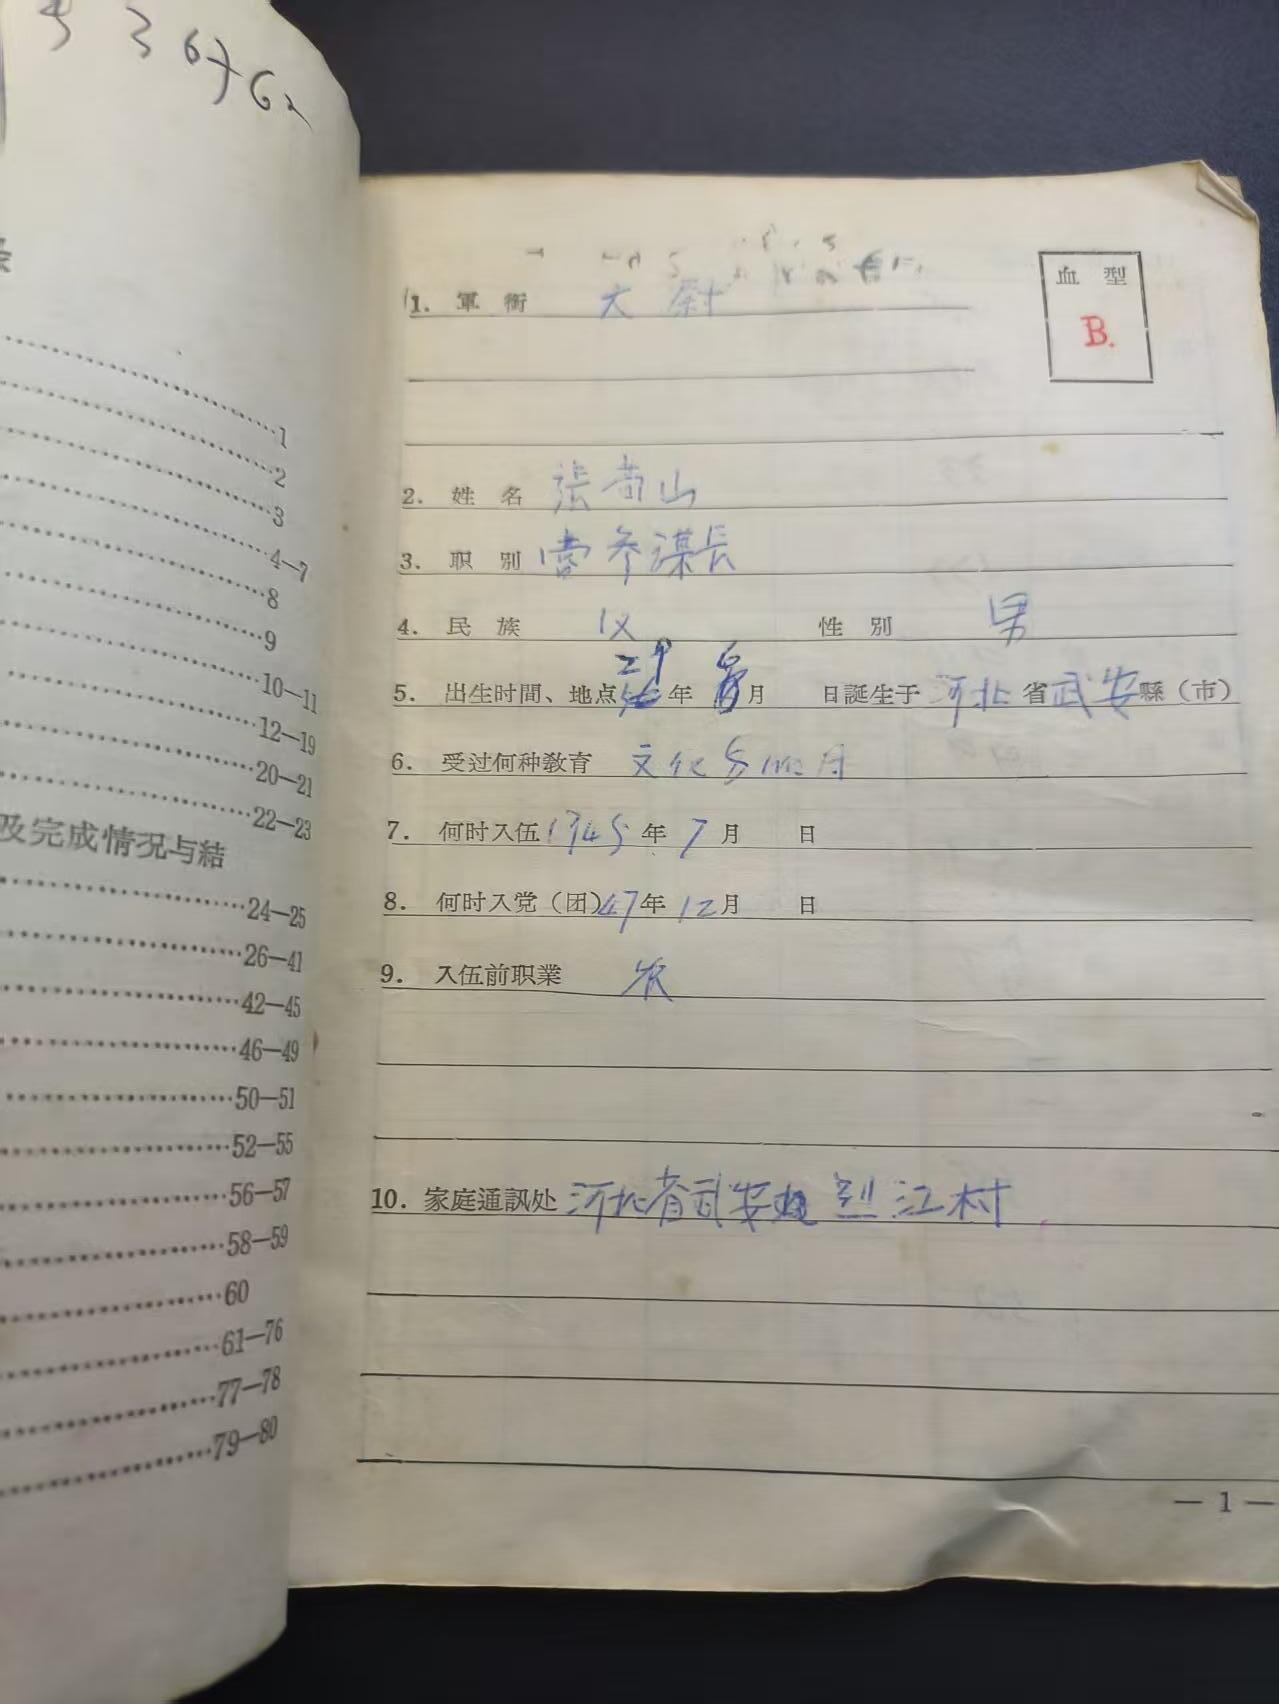 1
2
3
4—7
8
9
10—11
12—19
20—21
22—23
及完成情况与結
24—25
26—41
42—45
46—49
50—51
52—55
56—57
58—59
60
61—76
77—78
79—80
血型
B.
1. 軍銜 大尉
2. 姓名 張 山
3. 职別 营参謀長
4. 民族 汉 性別 男
5. 出生时間、地点 29年 6月 日誕生于河北省武安縣（市）
6. 受过何种教育 文化
7. 何时入伍1945年7月 日
8. 何时入党（团）47年12月 日
9. 入伍前职業 农
10. 家庭通訊处 河北省武安 江村
— 1 —